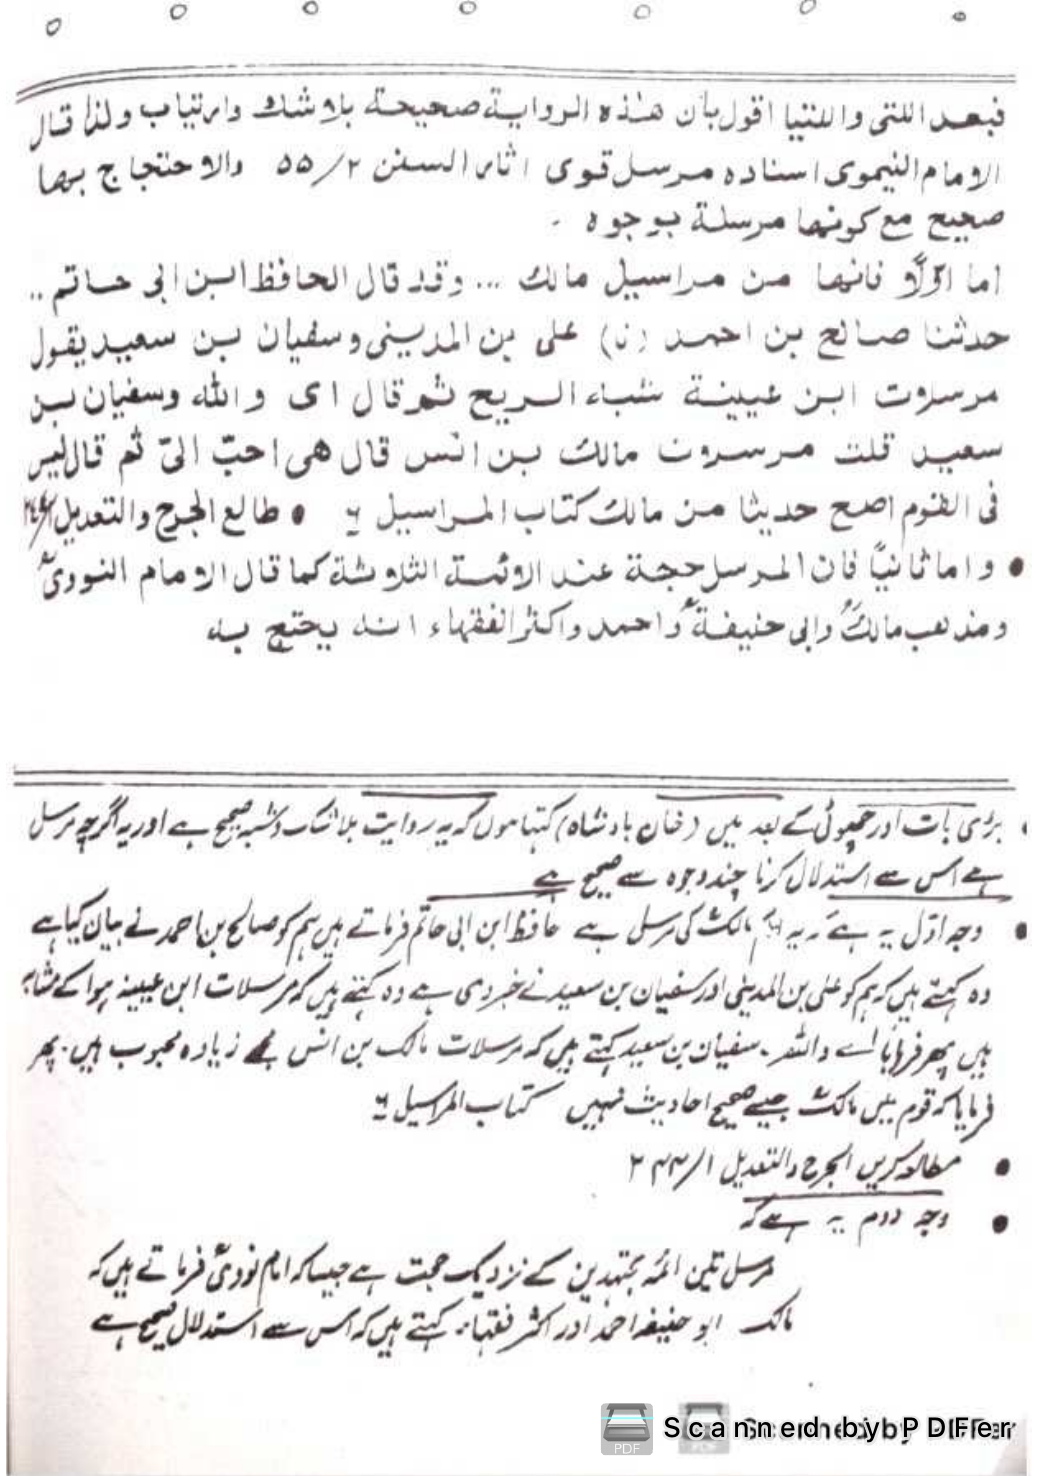 فبعد اللتى واللتيا اقول بأن هذه الرواية صحيحة بلا شك وارتياب ولذا قال
الامام النيموى اسناده مرسل قوى اثار السنن ٢/٥٥ والاحتجاج بها
صحيح مع كونها مرسلة بوجوه ۔
اما اوّلاً فانها من مراسيل مالك ... وقد قال الحافظ ابن ابى حاتم ..
حدثنا صالح بن احمد (نا) على بن المدينى وسفيان بن سعيد يقول
مرسلات ابن عيينة شباء الريح ثم قال اى والله وسفيان بن
سعيد قلت مرسلات مالك بن انس قال هى احبّ الىّ ثم قال ليس
فى القوم اصح حديثا من مالك كتاب المراسيل ٦ • طالع الجرح والتعديل
• واما ثانياً فان المرسل حجة عند الائمة الثلاثة كما قال الامام النووىؒ
ومذهب مالكؒ وابى حنيفةؒ واحمد واكثر الفقهاء انه يحتج به
بڑی بات اور چھوٹی کے بعد میں (خان بادشاہ) کہتا ہوں کہ یہ روایت بلا شک وشبہ صحیح ہے اور یہ اگرچہ مرسل
ہے اس سے استدلال کرنا چند وجوہ سے صحیح ہے
• وجہ اوّل یہ ہے کہ یہ مالکؒ کی مرسل ہے حافظ ابن ابی حاتم فرماتے ہیں ہم کو صالح بن احمد نے بیان کیا ہے
وہ کہتے ہیں کہ ہم کو علی بن المدینی اور سفیان بن سعید نے خبر دی ہے وہ کہتے ہیں کہ مرسلات ابن عیینہ ہوا کے مشابہ
ہیں پھر فرمایا اے واللہ ۔ سفیان بن سعید کہتے ہیں کہ مرسلات مالک بن انس مجھے زیادہ محبوب ہیں ۔ پھر
فرمایا کہ قوم میں مالکؒ جیسے صحیح احادیث نہیں کتاب المراسیل ٦
• مطالعہ کریں الجرح والتعدیل ١/٢٤٤
• وجہ دوم یہ ہے کہ
مرسل تین ائمہ مجتہدین کے نزدیک حجت ہے جیسا کہ امام نوویؒ فرماتے ہیں کہ
مالک ابو حنیفہ احمد اور اکثر فقہاء کہتے ہیں کہ اس سے استدلال صحیح ہے
Scanned by PDFer